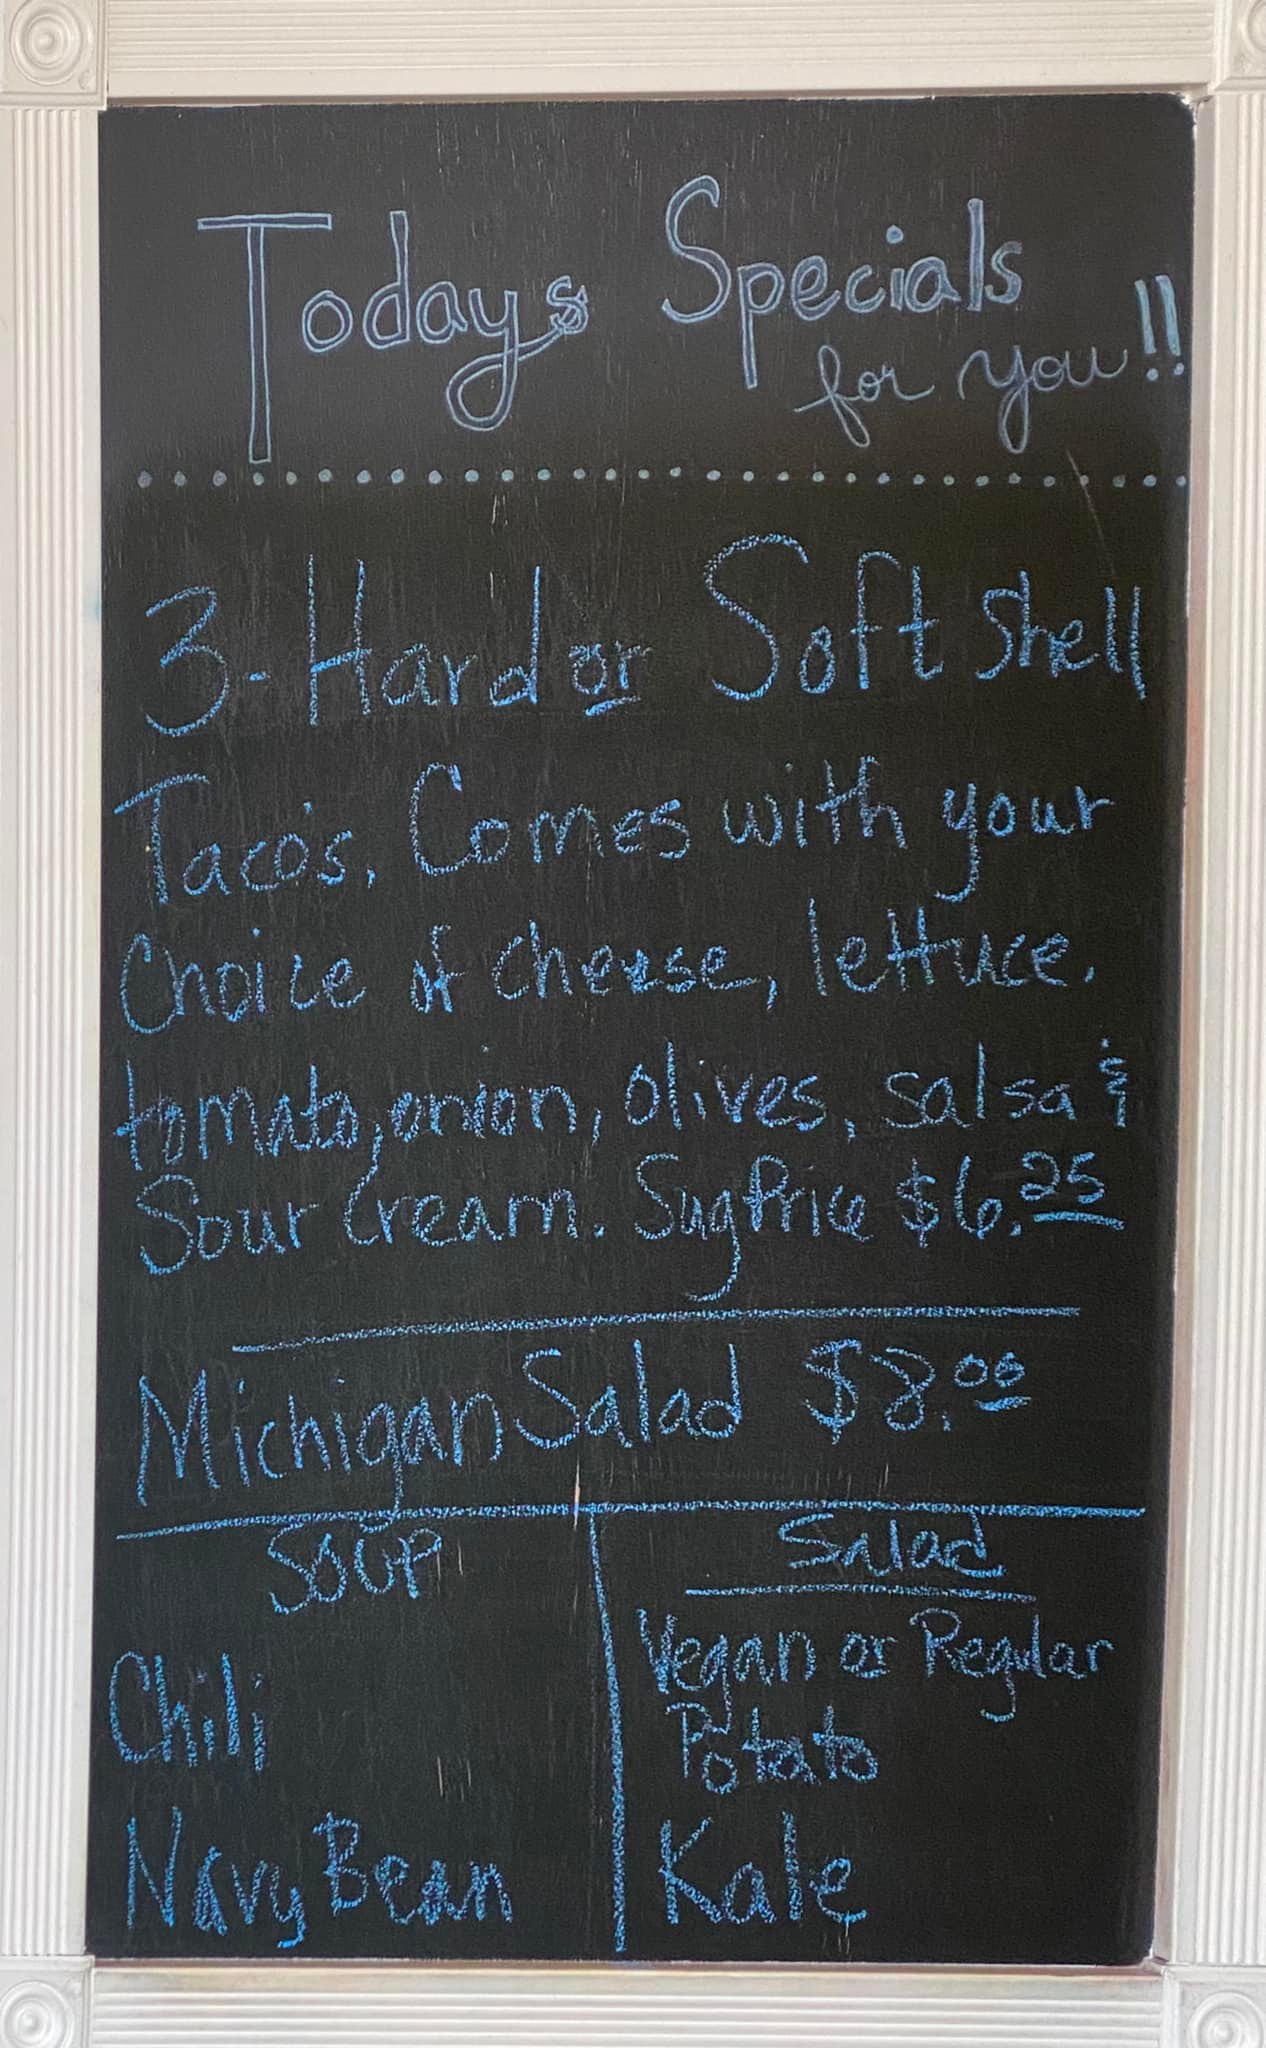 Todays Specials
for you!!
3-Hard or Soft Shell
Taco's. Comes with your
Choice of cheese, lettuce.
tomato, onion, olives, salsa &
Sour Cream. Sug Price $6.25
Michigan Salad $8.00
Soup
Salad
Chili
Navy Bean
Vegan or Regular
Potato
Kale